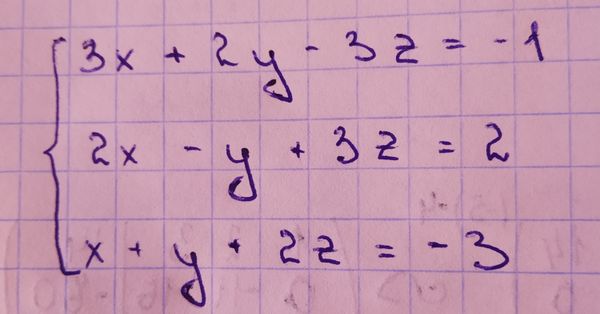 3x + 2y - 3z = -1
2x - y + 3z = 2
x + y + 2z = -3